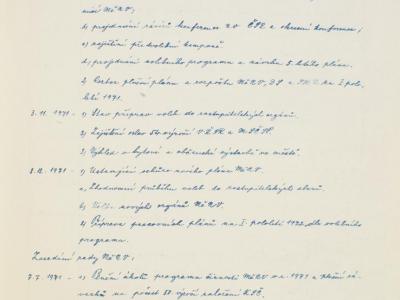 mací MěNV;
b) projednání závěrů konference NV ČSR a okresní konference;
c) zajištění předvolební kampaně
d) projednání volebního programu a návrhu 5 letého plánu.
2. Rozbor plnění plánu a rozpočtu MěNV, DS a za I. polo-
letí 1971.
3. 11. 1971 - 1) Stav příprav voleb do zastupitelských orgánů.
2) Zajištění oslav 54. výročí VŘSR a MČSSP.
3) Výhled v bytové a občanské výstavbě ve městě.
8. 12. 1971 - 1) Ustavující schůze nového pléna MěNV
a) Zhodnocení průběhu voleb do zastupitelských sborů.
b) Volba nových orgánů MěNV.
2) Příprava pracovních plánů na I. pololetí 1972, dle volebního
programu.
Zasedání rady MěNV:
7. 7. 1971 - 1) Plnění úkolů programu činnosti MěNV v r. 1971 a plnění zá-
vazků na počest 50. výročí založení KSČ.